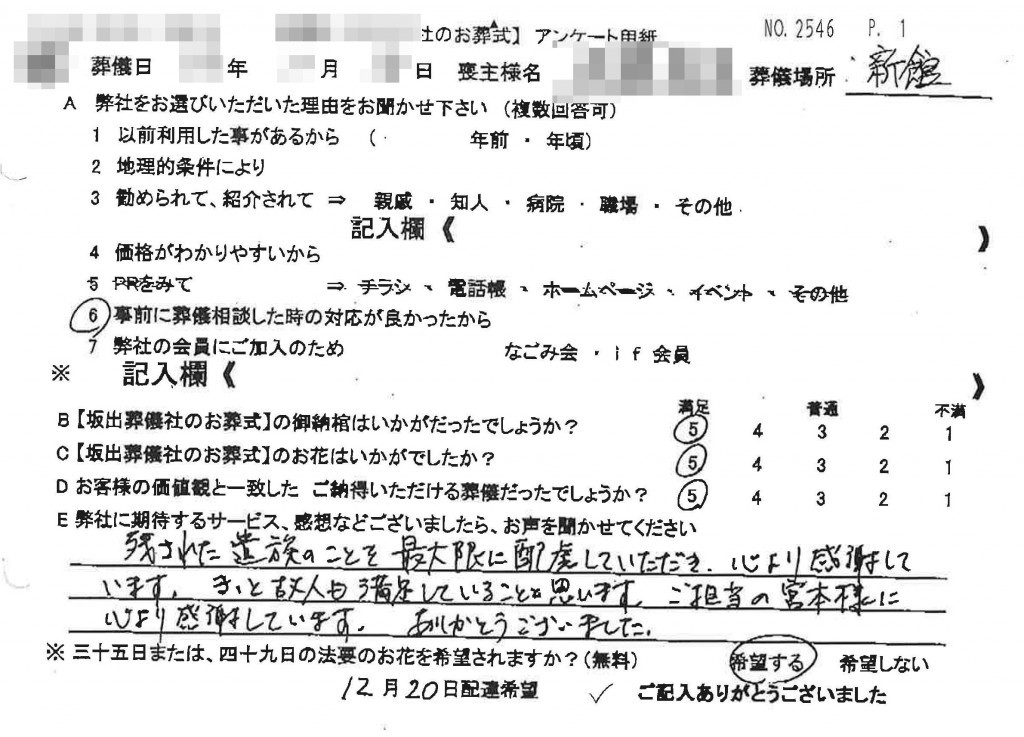 社のお葬式】 アンケート用紙 NO. 2546 P. 1
葬儀日 年 月 日 喪主様名 葬儀場所 新館
A 弊社をお選びいただいた理由をお聞かせ下さい(複数回答可)
1 以前利用した事があるから ( 年前 ・ 年頃)
2 地理的条件により
3 勧められて、紹介されて ⇒ 親戚 ・ 知人 ・ 病院 ・ 職場 ・ その他
記入欄《 》
4 価格がわかりやすいから
5 PRをみて ⇒ チラシ 、 電話帳 、 ホームページ 、 イベント 、 その他
6 事前に葬儀相談した時の対応が良かったから
7 弊社の会員にご加入のため なごみ会 ・ if 会員
※ 記入欄《 》
満足 普通 不満
B【坂出葬儀社のお葬式】の御納棺はいかがだったでしょうか? 5 4 3 2 1
C【坂出葬儀社のお葬式】のお花はいかがでしたか? 5 4 3 2 1
D お客様の価値観と一致した ご納得いただける葬儀だったでしょうか? 5 4 3 2 1
E 弊社に期待するサービス、感想などございましたら、お声を聞かせてください
残された遺族のことを最大限に配慮していただき、心より感謝して
います。きっと故人も満足していることと思います。ご担当の宮本様に
心より感謝しています。 ありがとうございました。
※ 三十五日または、四十九日の法要のお花を希望されますか?(無料) 希望する 希望しない
12月20日配達希望 ✓ ご記入ありがとうございました